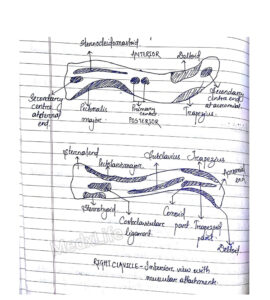 sternocleidomastoid
ANTERIOR
Deltoid
Secondary
centre
at sternal
end
Pectoralis
major
Primary
centre
POSTERIOR
Trapezius
Secondary
centre end
at acromial
Sternal end
Subclavius
Trapezius
Acromial
end
Sternohyoid
Costoclavicular
ligament
Conoid
part
Trapezoid
part
Deltoid
RIGHT CLAVICLE - Inferior view with
muscular attachments